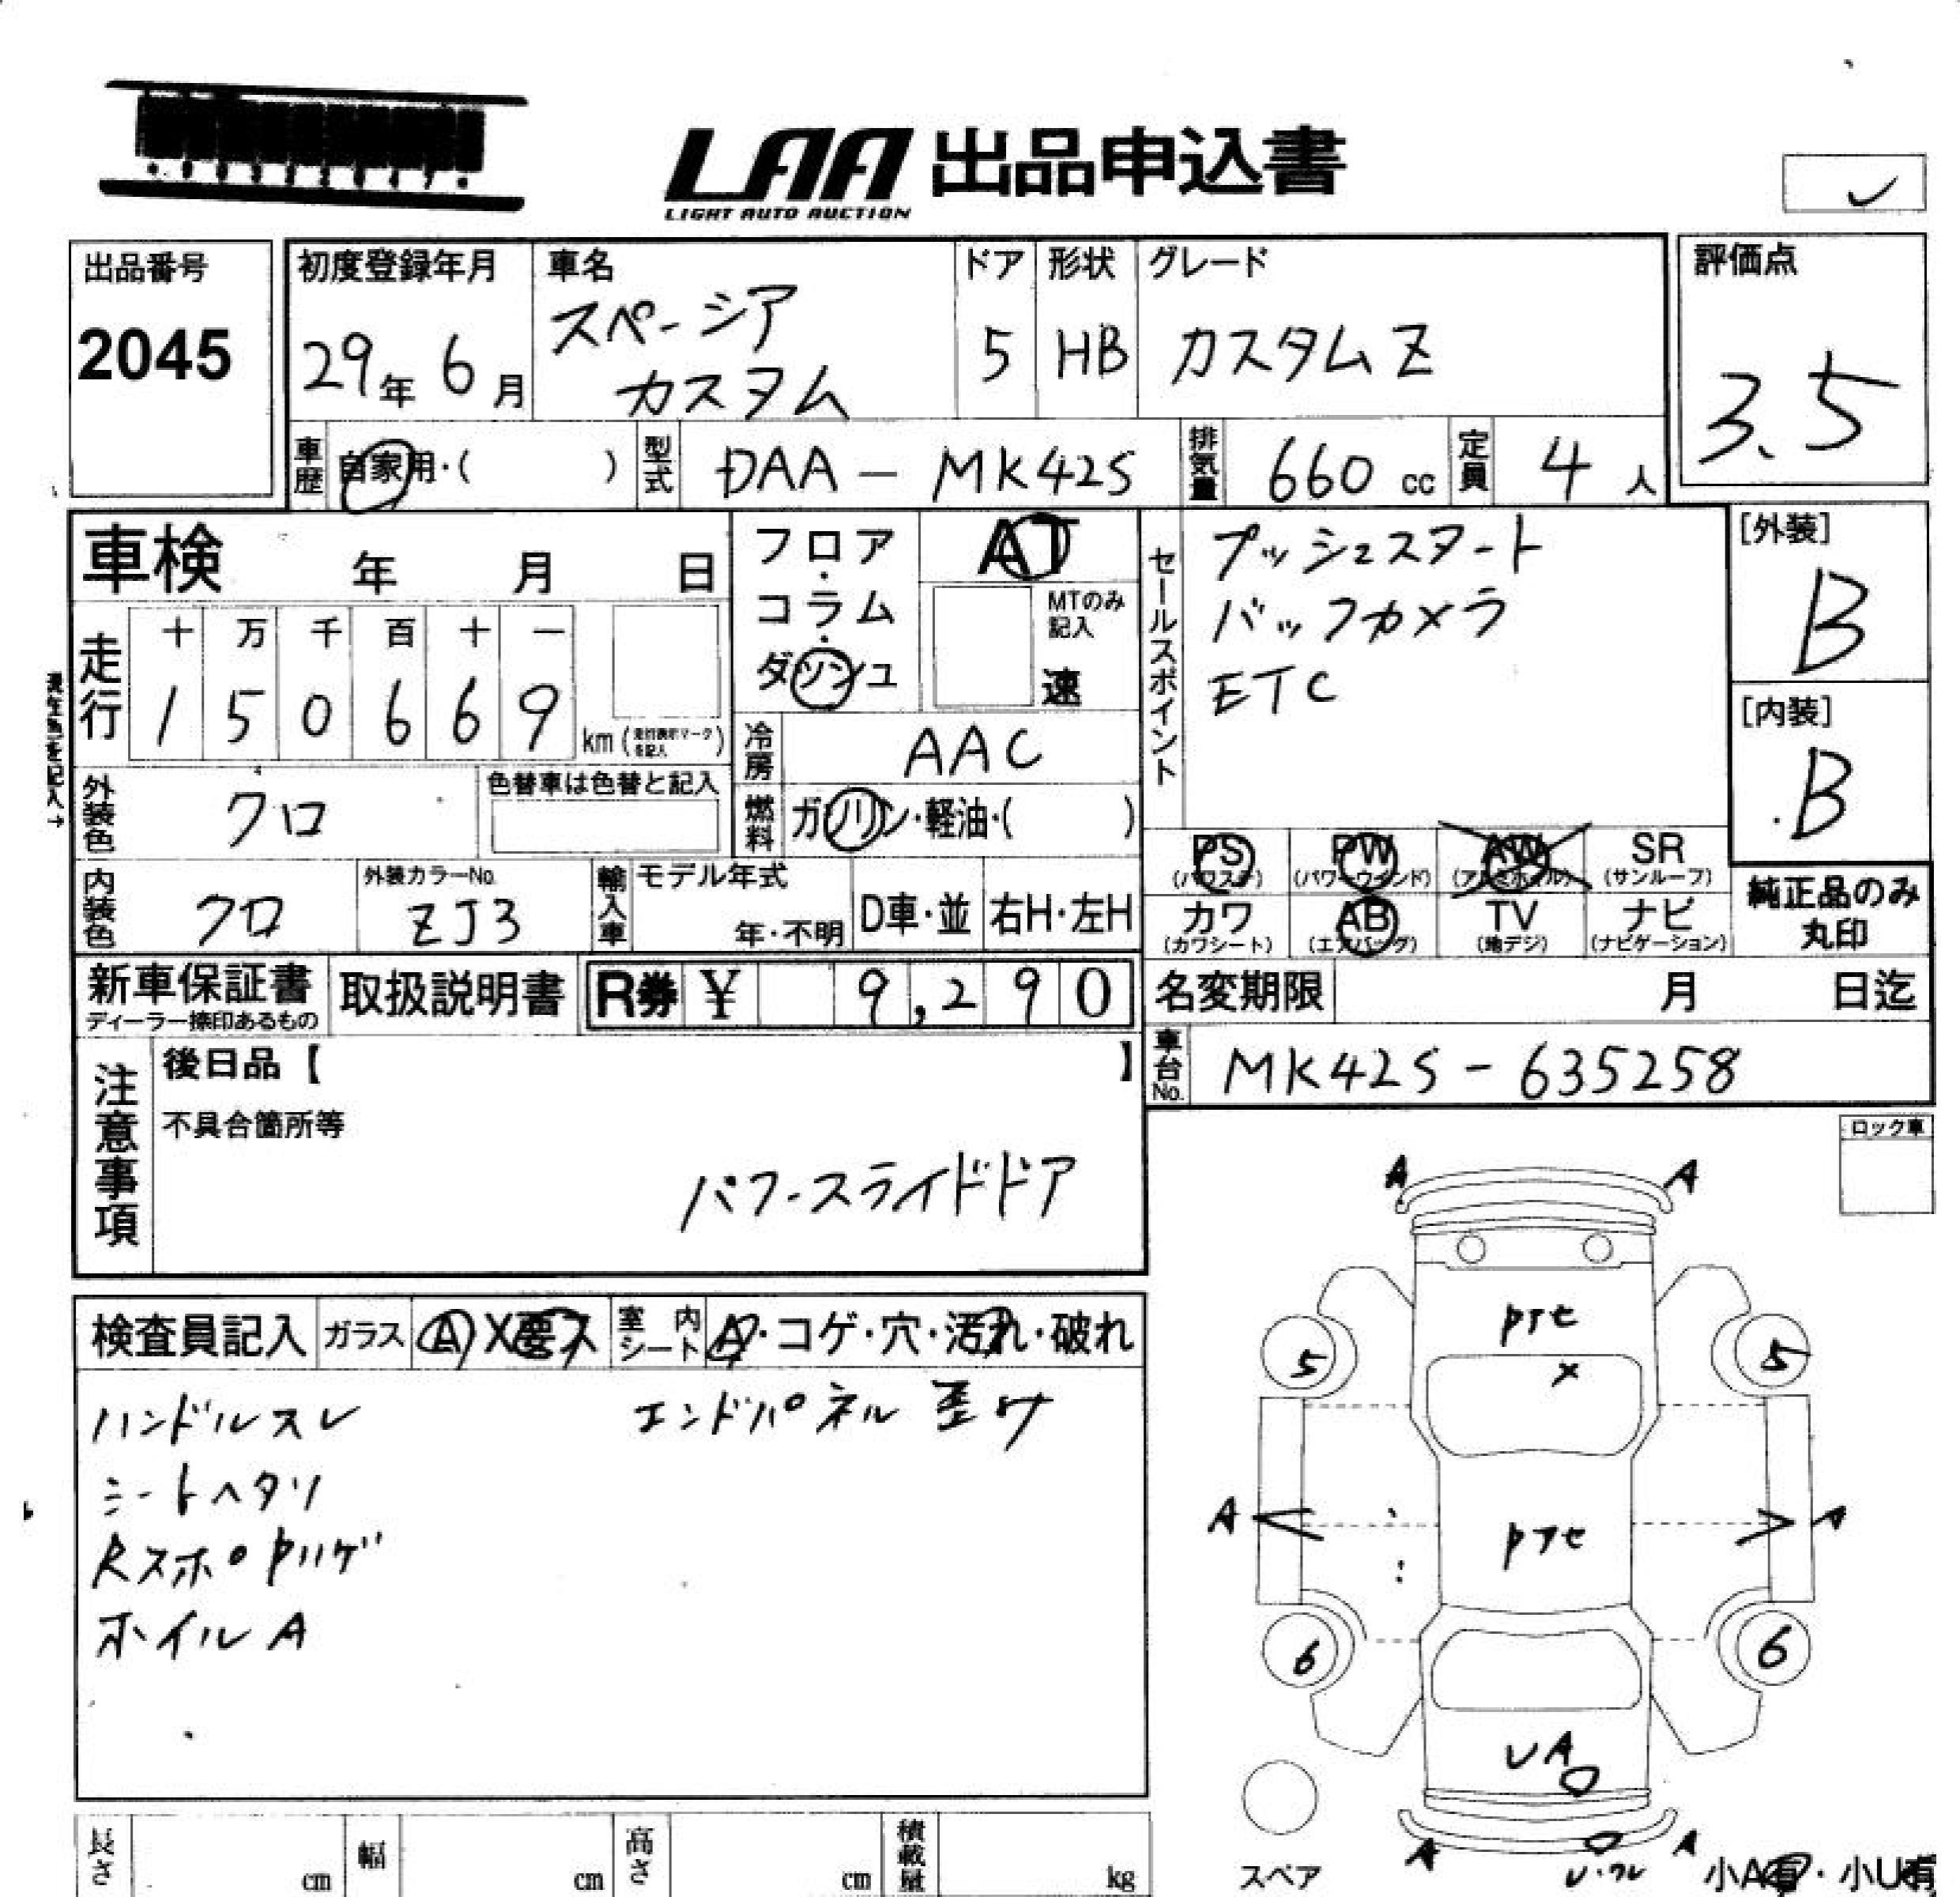 LAA 出品申込書
LIGHT AUTO AUCTION
出品番号
2045
初度登録年月
29年 6月
車名
スペーシア
カスタム
ドア
5
形状
HB
グレード
カスタムZ
評価点
3.5
車歴 自家用・( )
型式 DAA-MK42S
排気量 660 cc
定員 4人
車検 年 月 日
走行
十 万 千 百 十 一
1 5 0 6 6 9 km
フロア・コラム・ダッシュ
AT
MTのみ
記入
速
冷房 AAC
燃料 ガソリン・軽油・( )
セールスポイント
プッシュスタート
バックカメラ
ETC
[外装]
B
[内装]
B
外装色 クロ
色替車は色替と記入
内装色 クロ
外装カラーNo.
ZJ3
輸入車
モデル年式
年・不明
D車・並
右H・左H
PS (パワステ)
PW (パワーウインド)
AW (アルミホイル)
SR (サンルーフ)
カワ (カワシート)
AB (エアバッグ)
TV (地デジ)
ナビ (ナビゲーション)
純正品のみ
丸印
新車保証書
ディーラー捺印あるもの
取扱説明書
R券 ¥ 9,290
名変期限 月 日迄
車台No. MK42S-635258
注意事項
後日品【 】
不具合箇所等
パワースライドドア
ロック車
検査員記入
ガラス A X要ス
室内シート A・コゲ・穴・汚れ・破れ
ハンドルスレ
エンドパネル歪ケ
シートヘタリ
ホイルA
A A
5 5
X
A A
6 6
UA
A A
スペア
小A有・小U有
長さ cm
幅 cm
高さ cm
積載量 kg